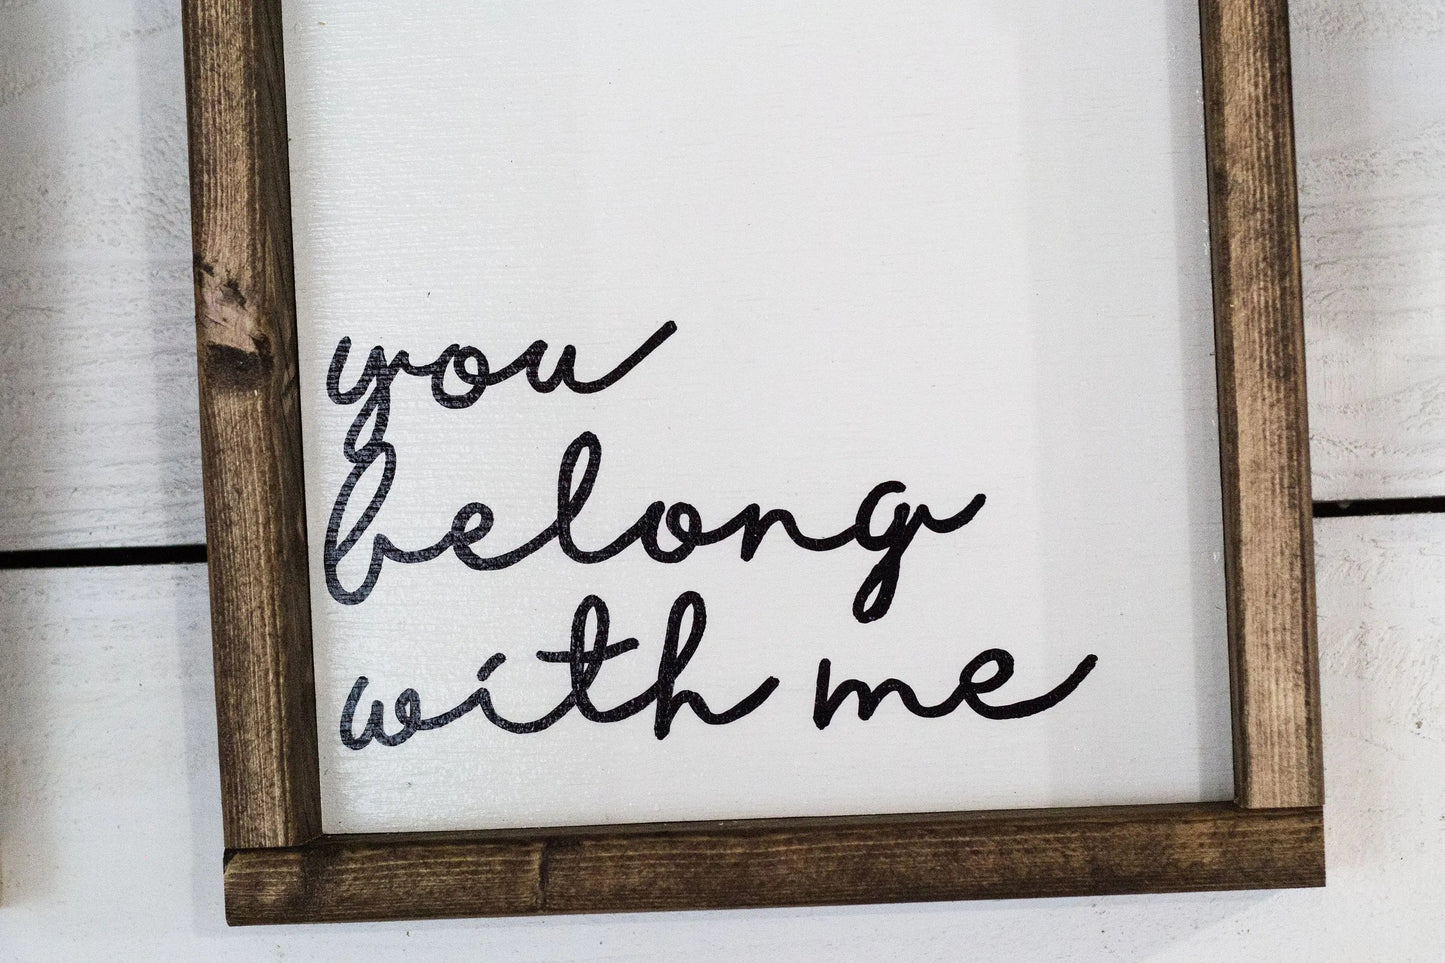 you
belong
with me